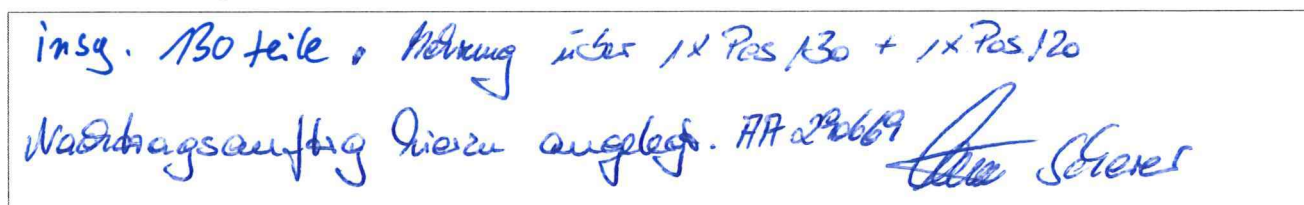 insg. 130 teile. Mehrung über 1x Pos 130 + 1x Pos 120
Nachtragsauftrag hierzu angelegt. AA 290669 Scherer